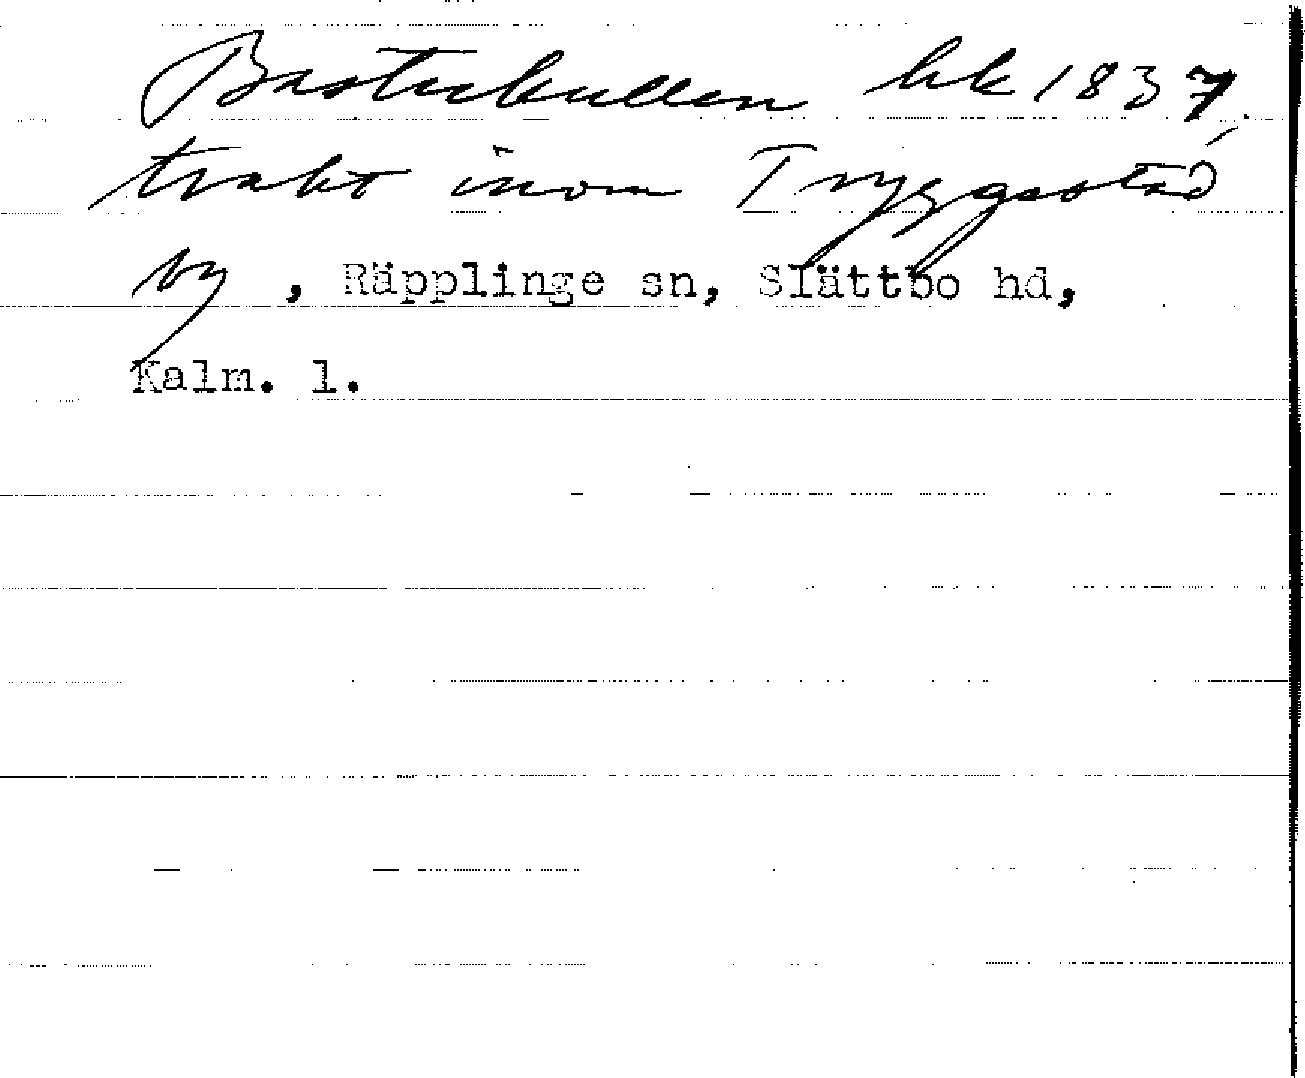 Bastukullen hk 1837,
trakt inom Tryggestad
by, Räpplinge sn, Slättbo hd,
Kalm. l.